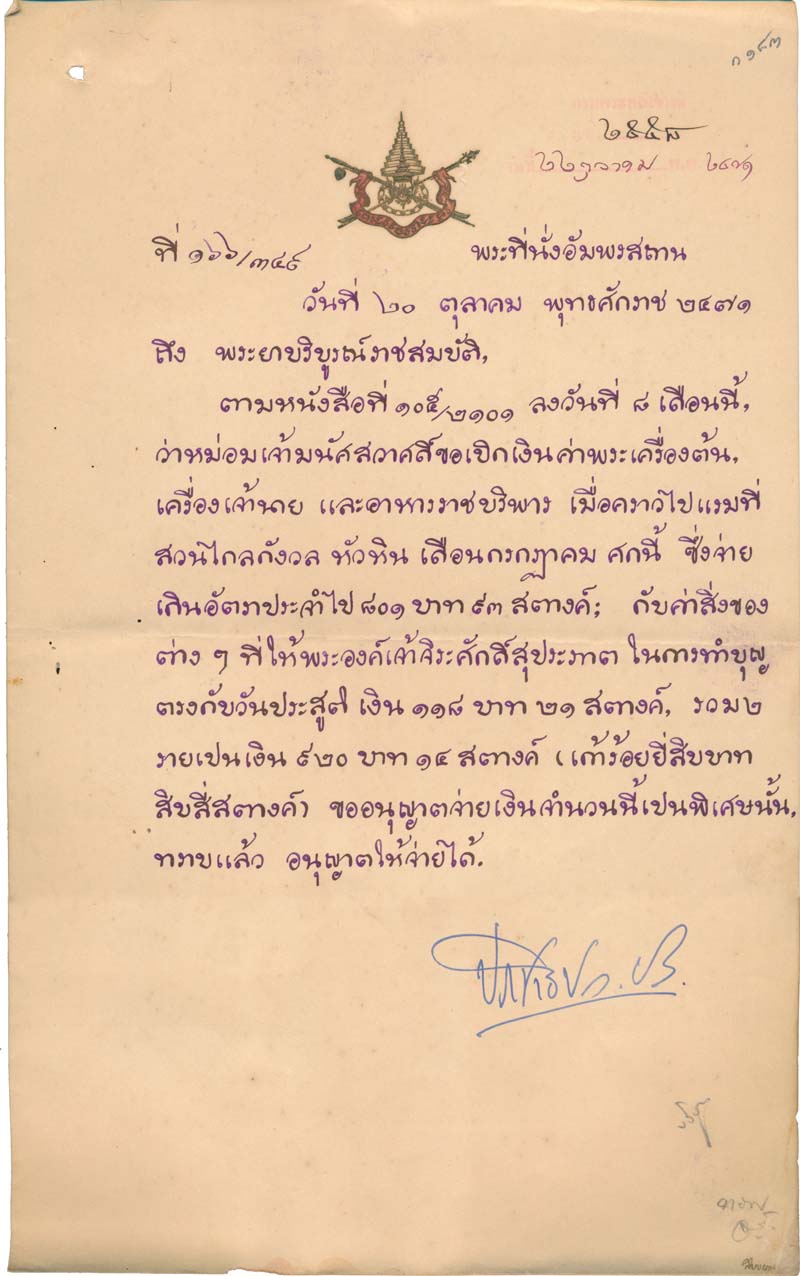 ๒๕๕๘
๒๒ ตุลาคม ๒๔๗๑
ที่ ๑๖๖/๓๔๙ พระที่นั่งอัมพรสถาน
วันที่ ๒๐ ตุลาคม พุทธศักราช ๒๔๗๑
ถึง พระยาบริบูรณ์ราชสมบัติ,
ตามหนังสือที่ ๑๐๕/๒๑๐๑ ลงวันที่ ๘ เดือนนี้,
ว่าหม่อมเจ้ามนัศสวาศดิ์ขอเบิกเงินค่าพระเครื่องต้น,
เครื่องเจ้านาย และอาหารราชบริพาร เมื่อคราวไปแรมที่
สวนไกลกังวล หัวหิน เดือนกรกฎาคม ศกนี้ ซึ่งจ่าย
เกินอัตราประจำไป ๘๐๑ บาท ๙๓ สตางค์; กับค่าสิ่งของ
ต่าง ๆ ที่ให้พระองค์เจ้าจิระศักดิ์สุประภาต ในการทำบุญ
ตรงกับวันประสูติ เงิน ๑๑๘ บาท ๒๑ สตางค์, รวม ๒
รายเปนเงิน ๙๒๐ บาท ๑๔ สตางค์ (เก้าร้อยยี่สิบบาท
สิบสี่สตางค์) ขออนุญาตจ่ายเงินจำนวนนี้เปนพิเศษนั้น,
ทราบแล้ว อนุญาตให้จ่ายได้.
ประชาธิปก. ปร.